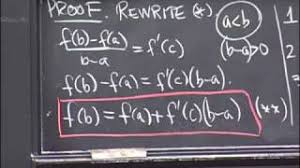 PROOF. REWRITE (*)
a<b
(b-a)>0
f(b)-f(a) / b-a = f'(c)
f(b)-f(a) = f'(c)(b-a).
f(b) = f(a)+f'(c)(b-a) (**)
1
2